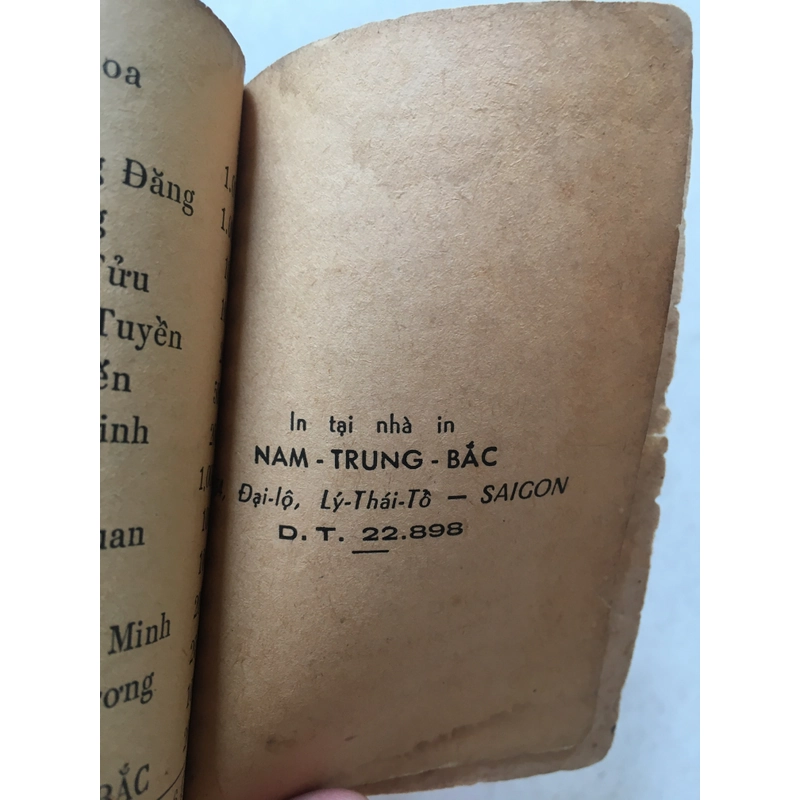 oa
Đăng
Tửu
Tuyền
inh
uan
Minh
ương
BẮC
In tại nhà in
NAM - TRUNG - BẮC
Đại-lộ, Lý-Thái-Tồ — SAIGON
D. T. 22.898